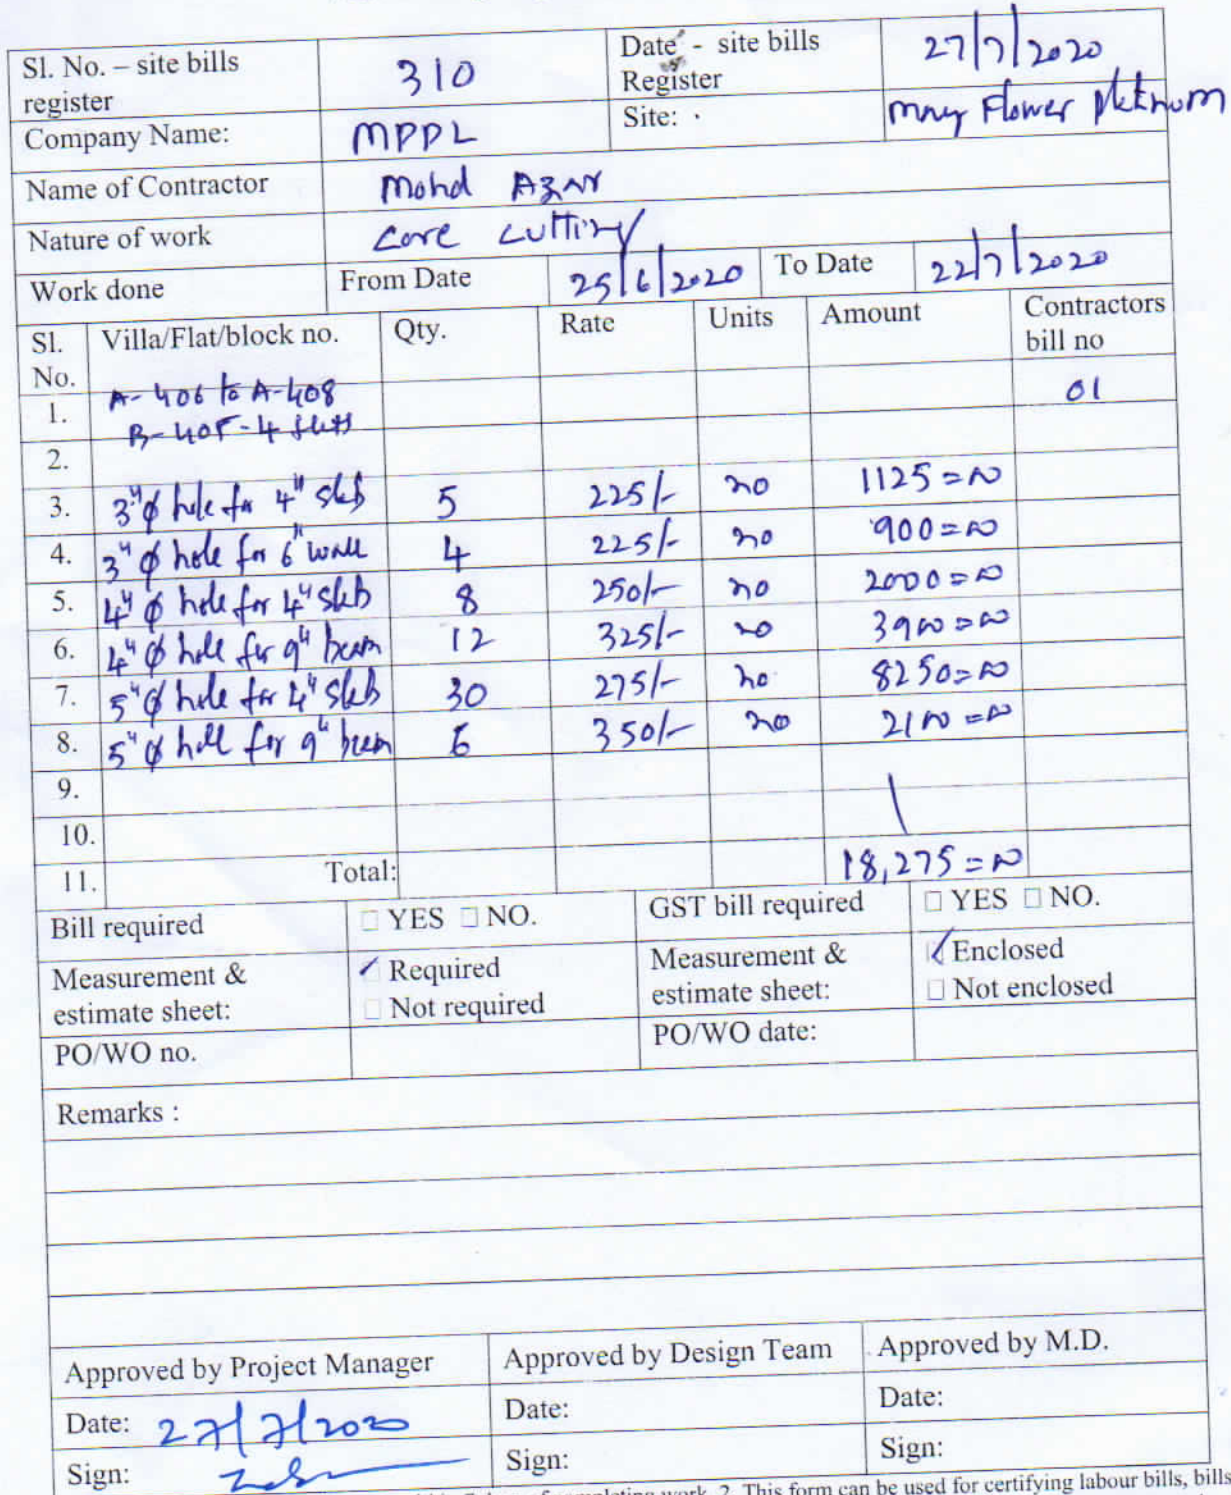 Sl. No. – site bills register 310 Date - site bills Register 27/7/2020
Company Name: MPPL Site: May Flower Platinum
Name of Contractor Mohd Azar
Nature of work Core cutting
Work done From Date 25/6/2020 To Date 22/7/2020
Sl. No. Villa/Flat/block no. Qty. Rate Units Amount Contractors bill no
1. A-406 to A-408 01
B-405-4 flats
2.
3. 3"φ hole for 4" slab 5 225/- no 1125=00
4. 3"φ hole for 6" wall 4 225/- no 900=00
5. 4"φ hole for 4" slab 8 250/- no 2000=00
6. 4"φ hole for 9" beam 12 325/- no 3900=00
7. 5"φ hole for 4" slab 30 275/- no 8250=00
8. 5"φ hole for 9" beam 6 350/- no 2100=00
9.
10.
11. Total: 18,275=00
Bill required □ YES □ NO. GST bill required □ YES □ NO.
Measurement & estimate sheet: ✓ Required Measurement & estimate sheet: ✓ Enclosed
□ Not required □ Not enclosed
PO/WO no. PO/WO date:
Remarks :
Approved by Project Manager Approved by Design Team Approved by M.D.
Date: 27/7/2020 Date: Date:
Sign: Sign: Sign:
completing work. 2. This form can be used for certifying labour bills, bills